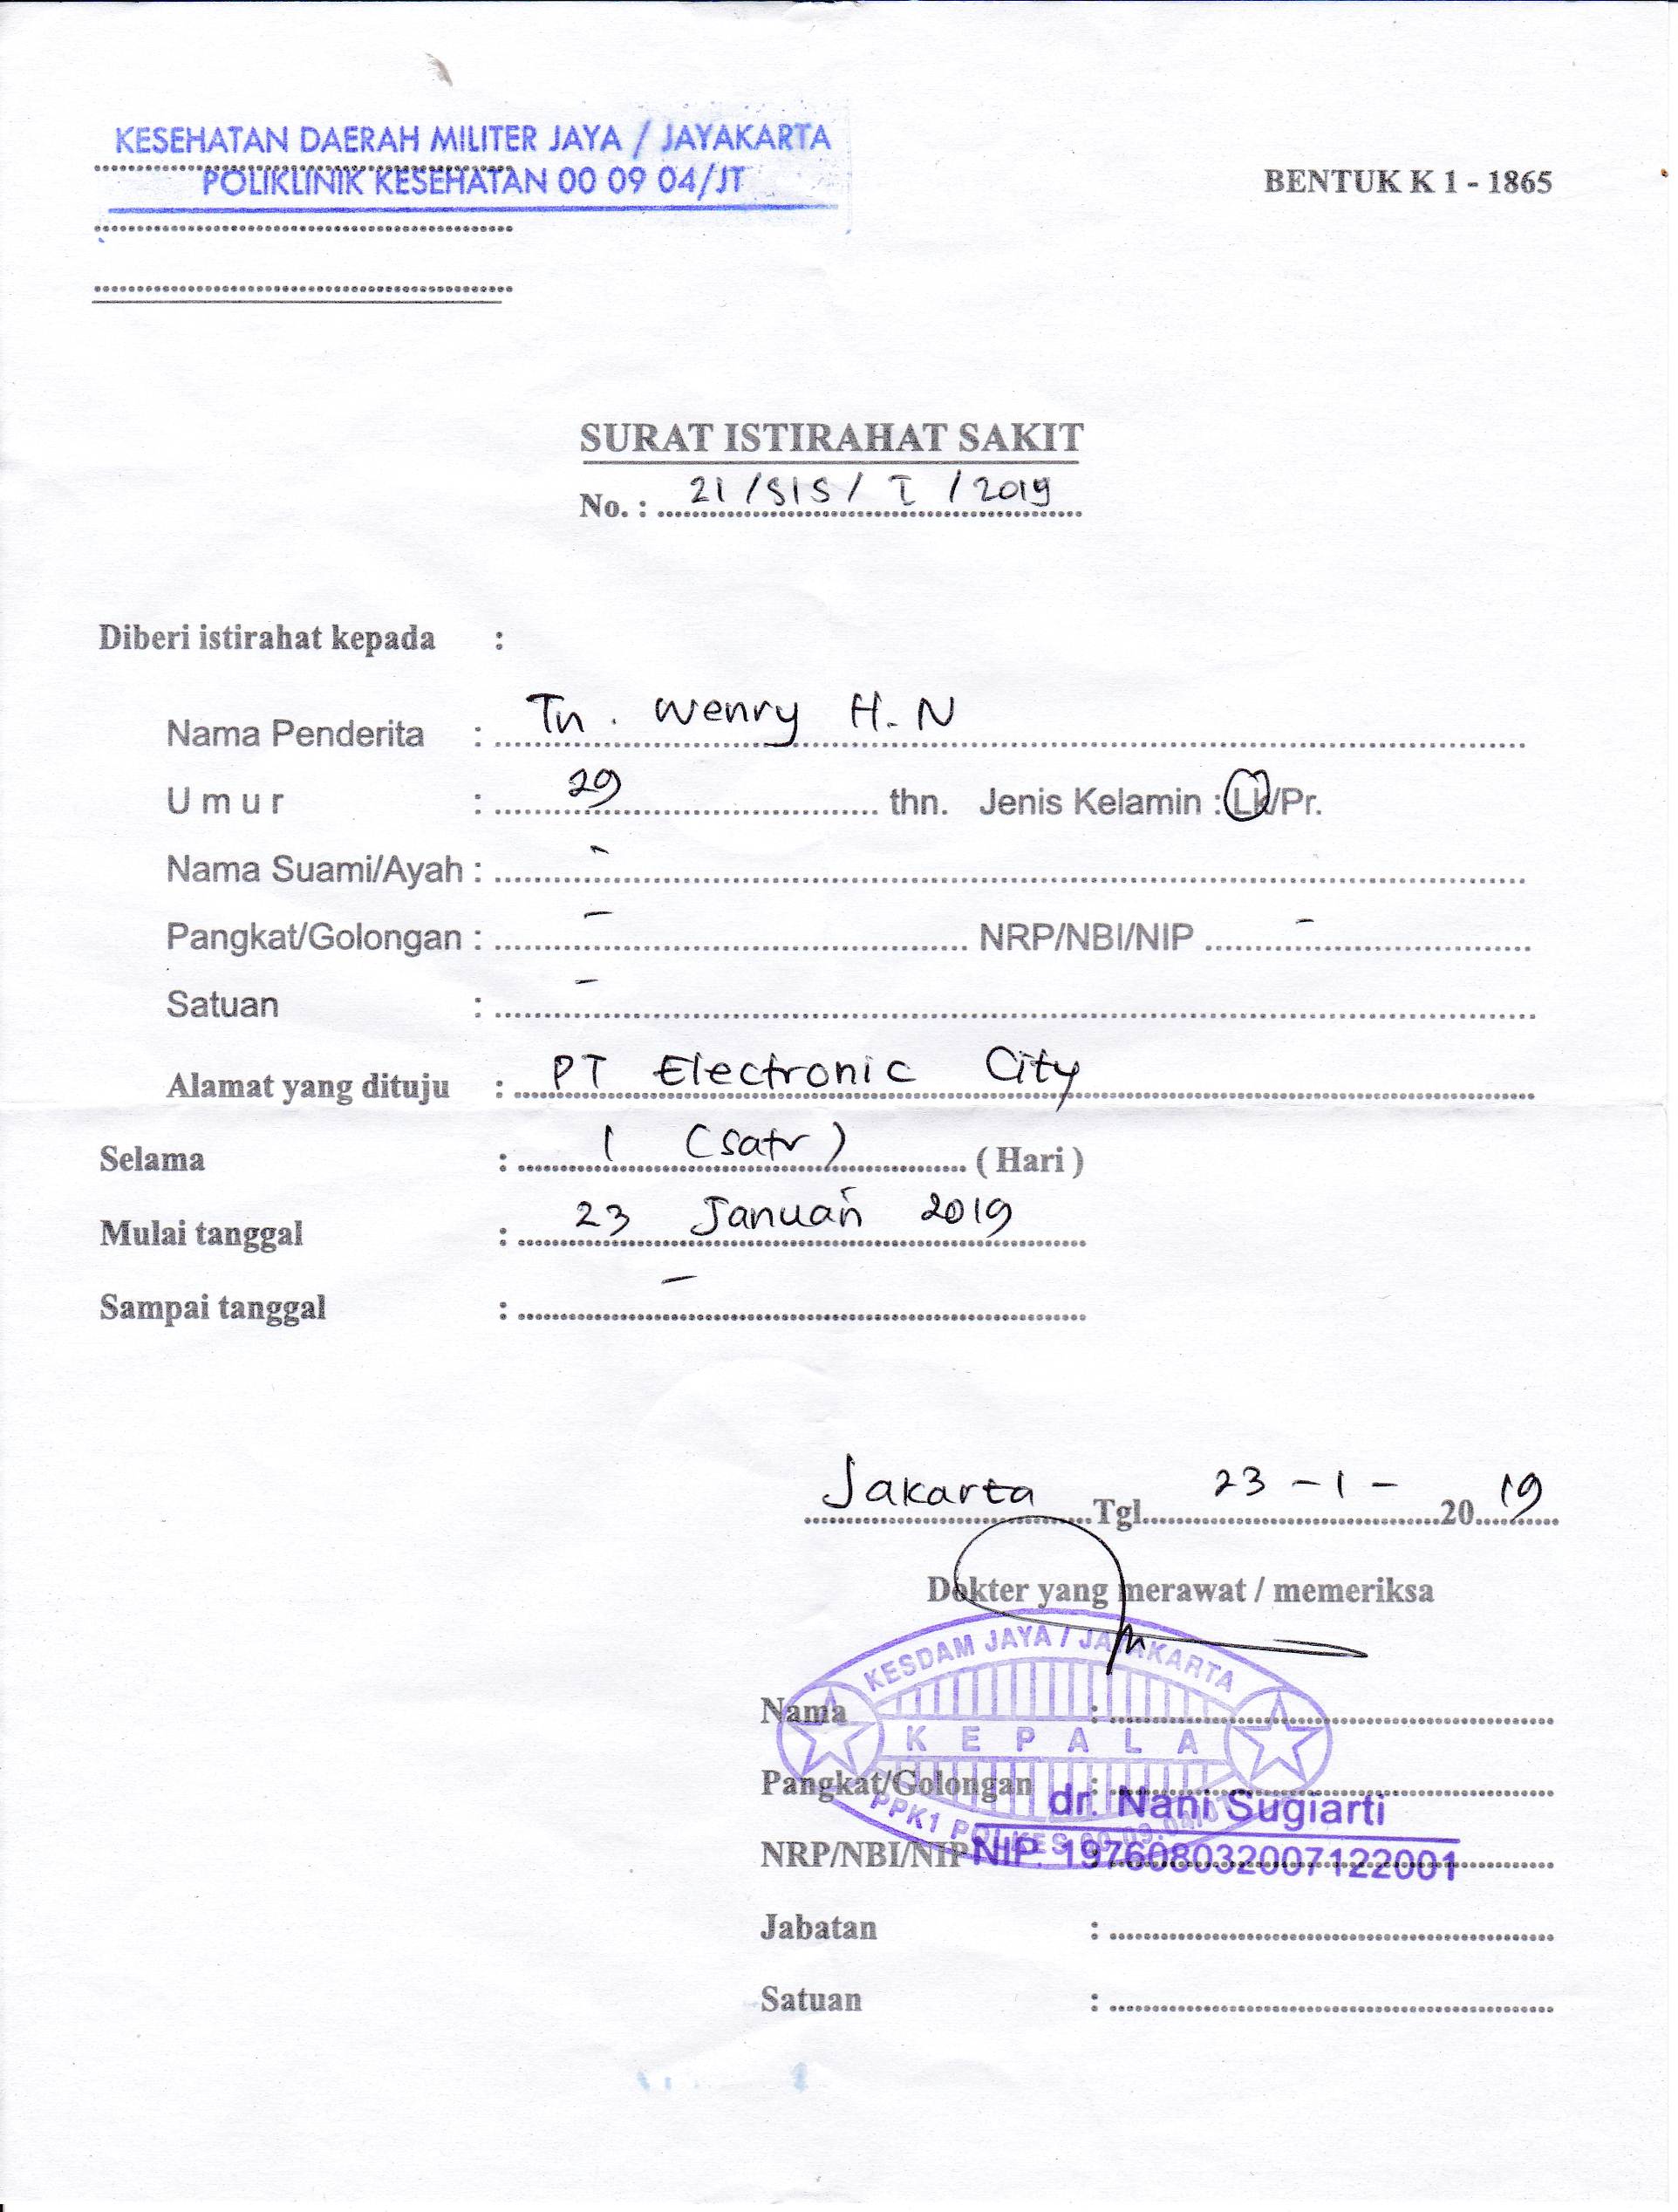 KESEHATAN DAERAH MILITER JAYA / JAYAKARTA
POLIKLINIK KESEHATAN 00 09 04/JT
BENTUK K 1 - 1865
SURAT ISTIRAHAT SAKIT
No. : 21 / SIS / I / 2019
Diberi istirahat kepada :
Nama Penderita : Tn. Wenry H.N
Umur : 29 thn. Jenis Kelamin : Lk/Pr.
Nama Suami/Ayah : -
Pangkat/Golongan : - NRP/NBI/NIP -
Satuan : -
Alamat yang dituju : PT Electronic City
Selama : 1 (satu) (Hari)
Mulai tanggal : 23 Januari 2019
Sampai tanggal : -
Jakarta Tgl. 23 - 1 - 2019
Dokter yang merawat / memeriksa
KESDAM JAYA / JAYAKARTA
Nama :
KEPALA
Pangkat/Golongan :
dr. Nani Sugiarti
PPK1 POLKES 00.09.04/
NRP/NBI/NIP : NIP. 197608032007122001
Jabatan :
Satuan :